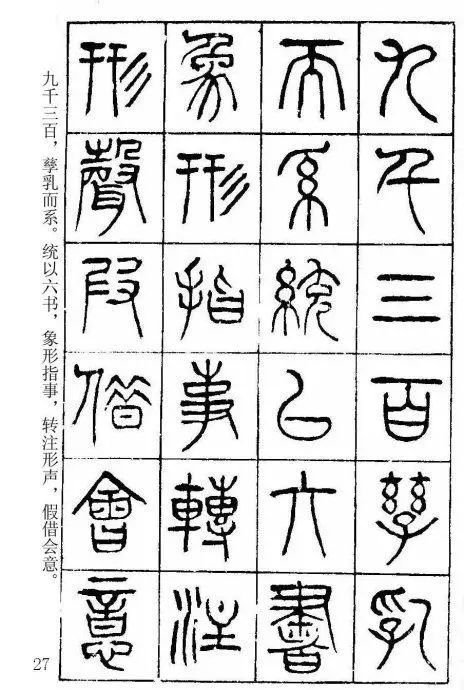 九千三百孳乳
而系統㠯六書
象形指事轉注
形聲叚借會意
九千三百，孳乳而系。统以六书，象形指事，转注形声，假借会意。
27